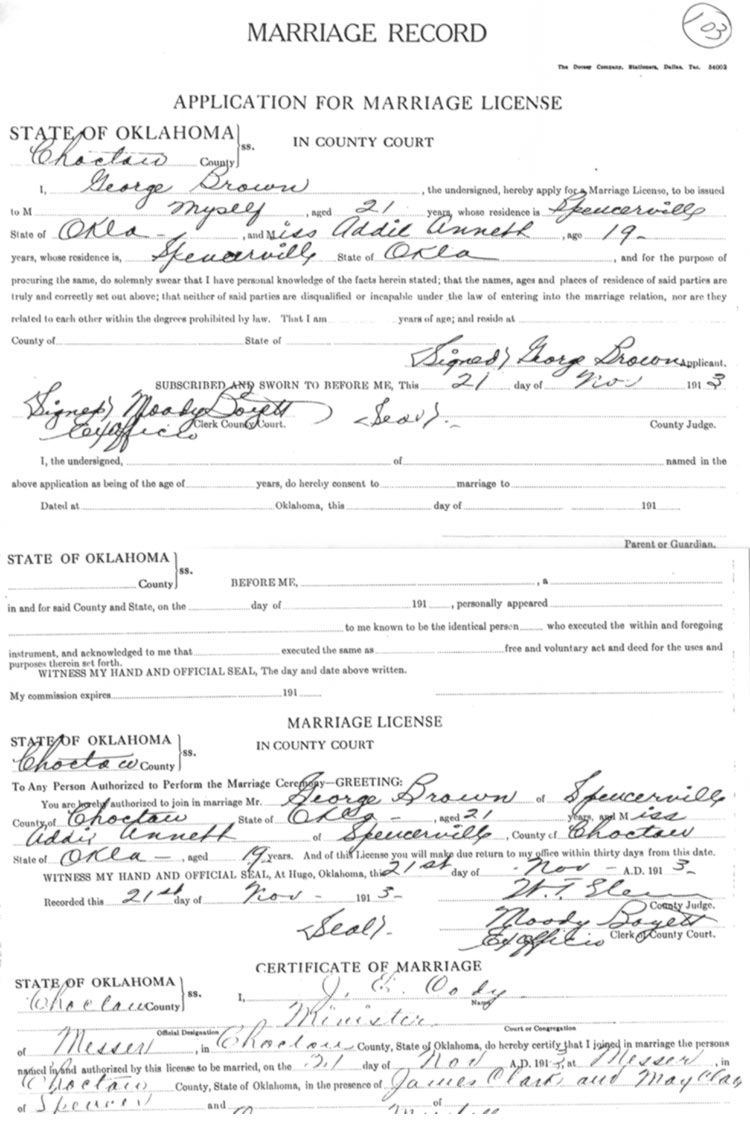 103
MARRIAGE RECORD
The Dorsey Company, Stationers, Dallas, Tex. 54003
APPLICATION FOR MARRIAGE LICENSE
STATE OF OKLAHOMA } ss. IN COUNTY COURT
Choctaw County
I, George Brown, the undersigned, hereby apply for a Marriage License, to be issued
to M Myself, aged 21 years, whose residence is Spencerville
State of Okla -, and Miss Addie Annett, age 19-
years, whose residence is, Spencerville State of Okla, and for the purpose of
procuring the same, do solemnly swear that I have personal knowledge of the facts herein stated; that the names, ages and places of residence of said parties are
truly and correctly set out above; that neither of said parties are disqualified or incapable under the law of entering into the marriage relation, nor are they
related to each other within the degrees prohibited by law. That I am years of age; and reside at
County of State of
(Signed) George Brown Applicant.
SUBSCRIBED AND SWORN TO BEFORE ME, This 21 day of Nov 1913
(Signed) Moody Boyett (Seal).-
Exofficio Clerk County Court. County Judge.
I, the undersigned, of named in the
above application as being of the age of years, do hereby consent to marriage to
Dated at Oklahoma, this day of 191
Parent or Guardian.
STATE OF OKLAHOMA } ss.
County BEFORE ME, , a
in and for said County and State, on the day of 191 , personally appeared
to me known to be the identical person who executed the within and foregoing
instrument, and acknowledged to me that executed the same as free and voluntary act and deed for the uses and
purposes therein set forth.
WITNESS MY HAND AND OFFICIAL SEAL, The day and date above written.
My commission expires 191
MARRIAGE LICENSE
STATE OF OKLAHOMA } ss. IN COUNTY COURT
Choctaw County
To Any Person Authorized to Perform the Marriage Ceremony—GREETING:
You are hereby authorized to join in marriage Mr. George Brown of Spencerville
County of Choctaw State of Okla -, aged 21 years, and Miss
Addie Annett of Spencerville, County of Choctaw
State of Okla -, aged 19 years. And of this License you will make due return to my office within thirty days from this date.
WITNESS MY HAND AND OFFICIAL SEAL, At Hugo, Oklahoma, this 21st day of Nov - A.D. 1913-
Recorded this 21st day of Nov - 1913- W.T. County Judge.
(Seal).- Moody Boyett
Exofficio Clerk of County Court.
CERTIFICATE OF MARRIAGE
STATE OF OKLAHOMA } ss. I, J. E. Oody
Name
Choctaw County Minister
Official Designation Court or Congregation
of Messer, in Choctaw County, State of Oklahoma, do hereby certify that I joined in marriage the persons
named in and authorized by this license to be married, on the 21 day of Nov A.D. 1913, at Messer, in
Choctaw County, State of Oklahoma, in the presence of James Clark and May Clay
of Spencer and of